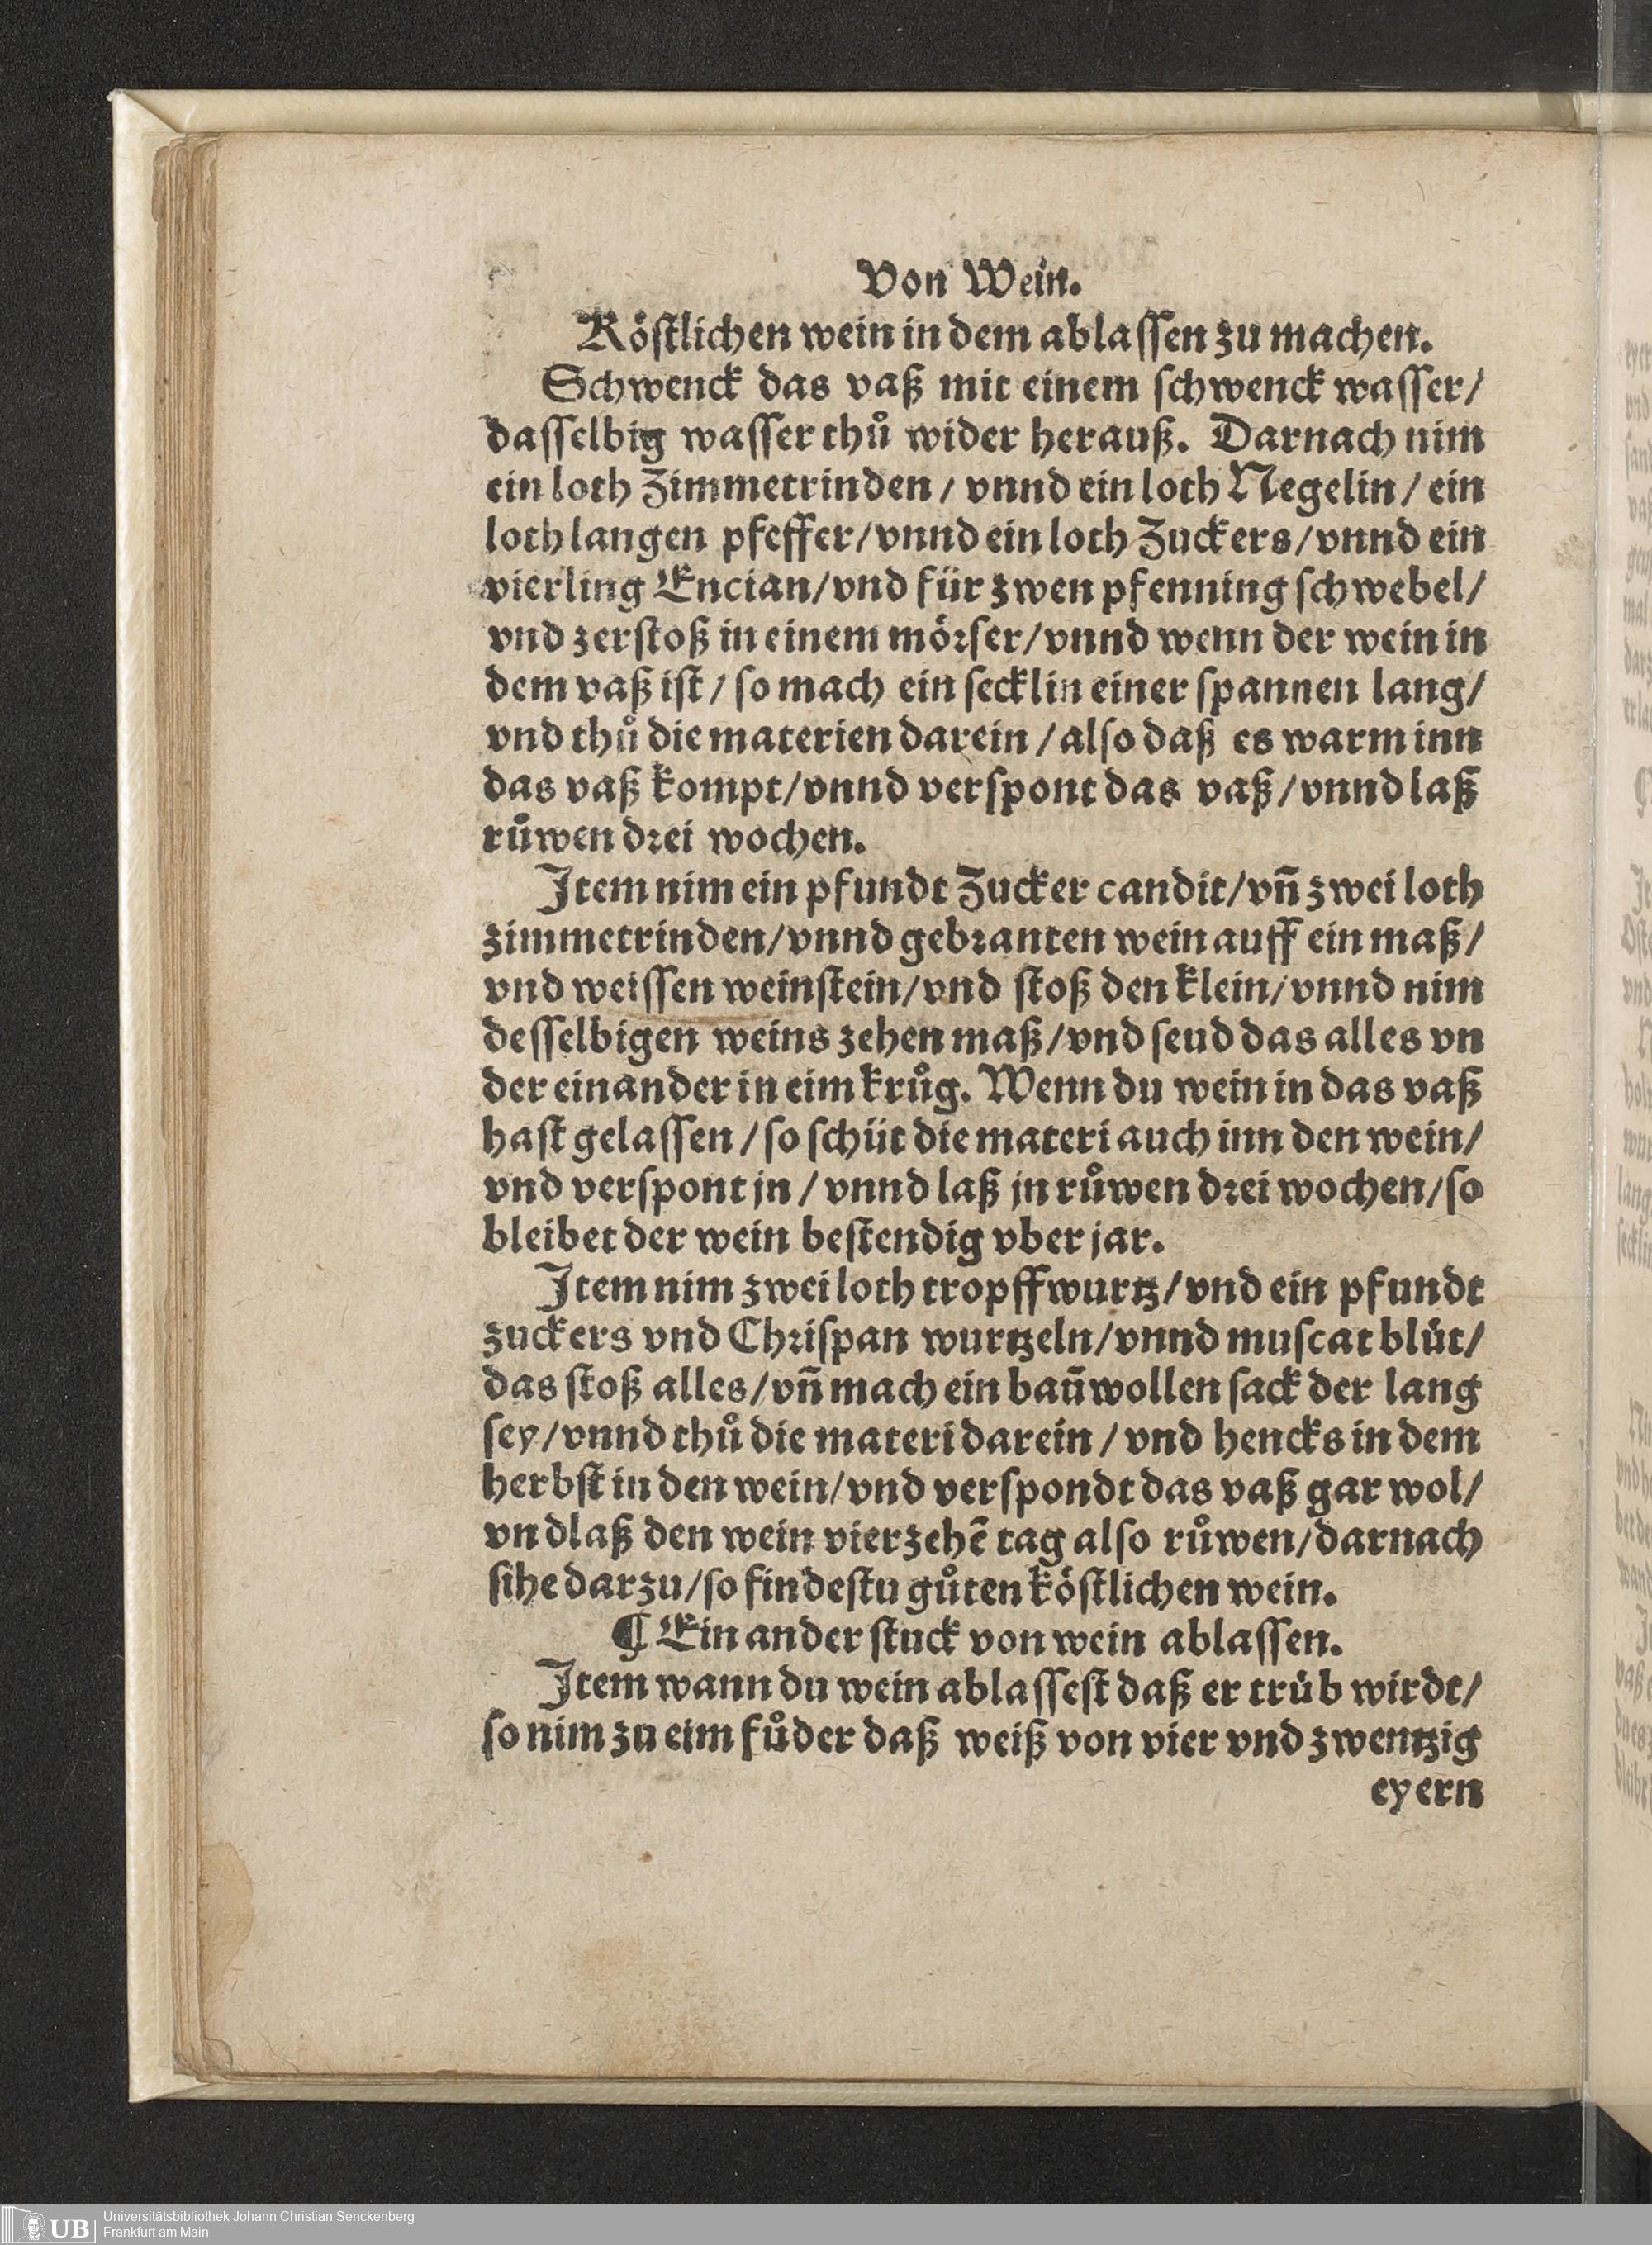 Von Wein.
Köſtlichen wein in dem ablaſſen zu machen.
Schwenck das vaß mit einem ſchwenck waſſer/
daſſelbig waſſer thů wider herauß. Darnach nim
ein loth Zimmetrinden / vnnd ein loth Negelin / ein
loth langen pfeffer/vnnd ein loth Zuckers/vnnd ein
vierling Encian/vnd für zwen pfenning ſchwebel/
vnd zerſtoß in einem mörſer/vnnd wenn der wein in
dem vaß iſt / ſo mach ein ſecklin einer ſpannen lang/
vnd thů die materien darein / alſo daß es warm inn
das vaß kompt/vnnd verſpont das vaß/vnnd laß
růwen drei wochen.
Item nim ein pfundt Zucker candit/vn̄ zwei loth
zimmetrinden/vnnd gebranten wein auff ein maß/
vnd weiſſen weinſtein/vnd ſtoß den klein/vnnd nim
deſſelbigen weins zehen maß/vnd ſeud das alles vn
der einander in eim krůg. Wenn du wein in das vaß
haſt gelaſſen / ſo ſchüt die materi auch inn den wein/
vnd verſpont jn / vnnd laß jn růwen drei wochen/ſo
bleibet der wein beſtendig vber jar.
Item nim zwei loth tropffwurtz/vnd ein pfundt
zuckers vnd Chriſpan wurtzeln/vnnd muſcat blüt/
das ſtoß alles/vn̄ mach ein baūwollen ſack der lang
ſey/vnnd thů die materi darein / vnd hencks in dem
herbſt in den wein/vnd verſpondt das vaß gar wol/
vn dlaß den wein vierzehē tag alſo růwen/darnach
ſihe darzu/ſo findeſtu gůten köſtlichen wein.
¶ Ein ander ſtuck von wein ablaſſen.
Item wann du wein ablaſſeſt daß er trüb wirdt/
ſo nim zu eim fůder daß weiß von vier vnd zwentzig
eyern
UB
Universitätsbibliothek Johann Christian Senckenberg
Frankfurt am Main